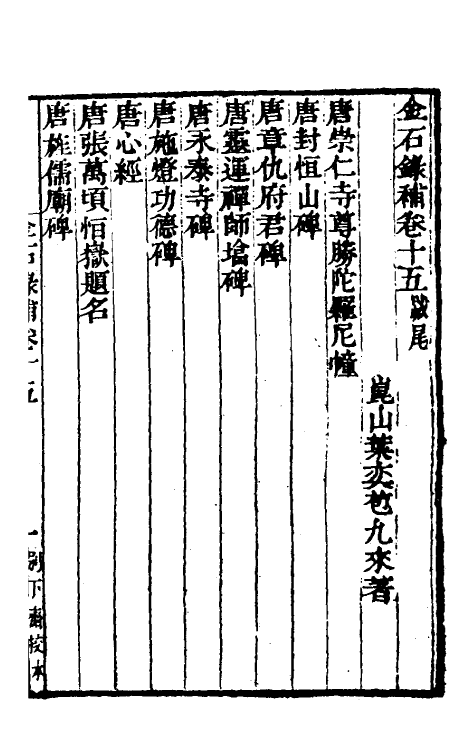 金石錄補卷十五 跋尾
崑山葉奕苞九來著
唐崇仁寺尊勝陀羅尼幢
唐封恒山碑
唐章仇府君碑
唐靈運禪師塔碑
唐永泰寺碑
唐施燈功德碑
唐心經
唐張萬頃恒嶽題名
唐旌儒廟碑
金石錄補卷十五 一 別下齋校本